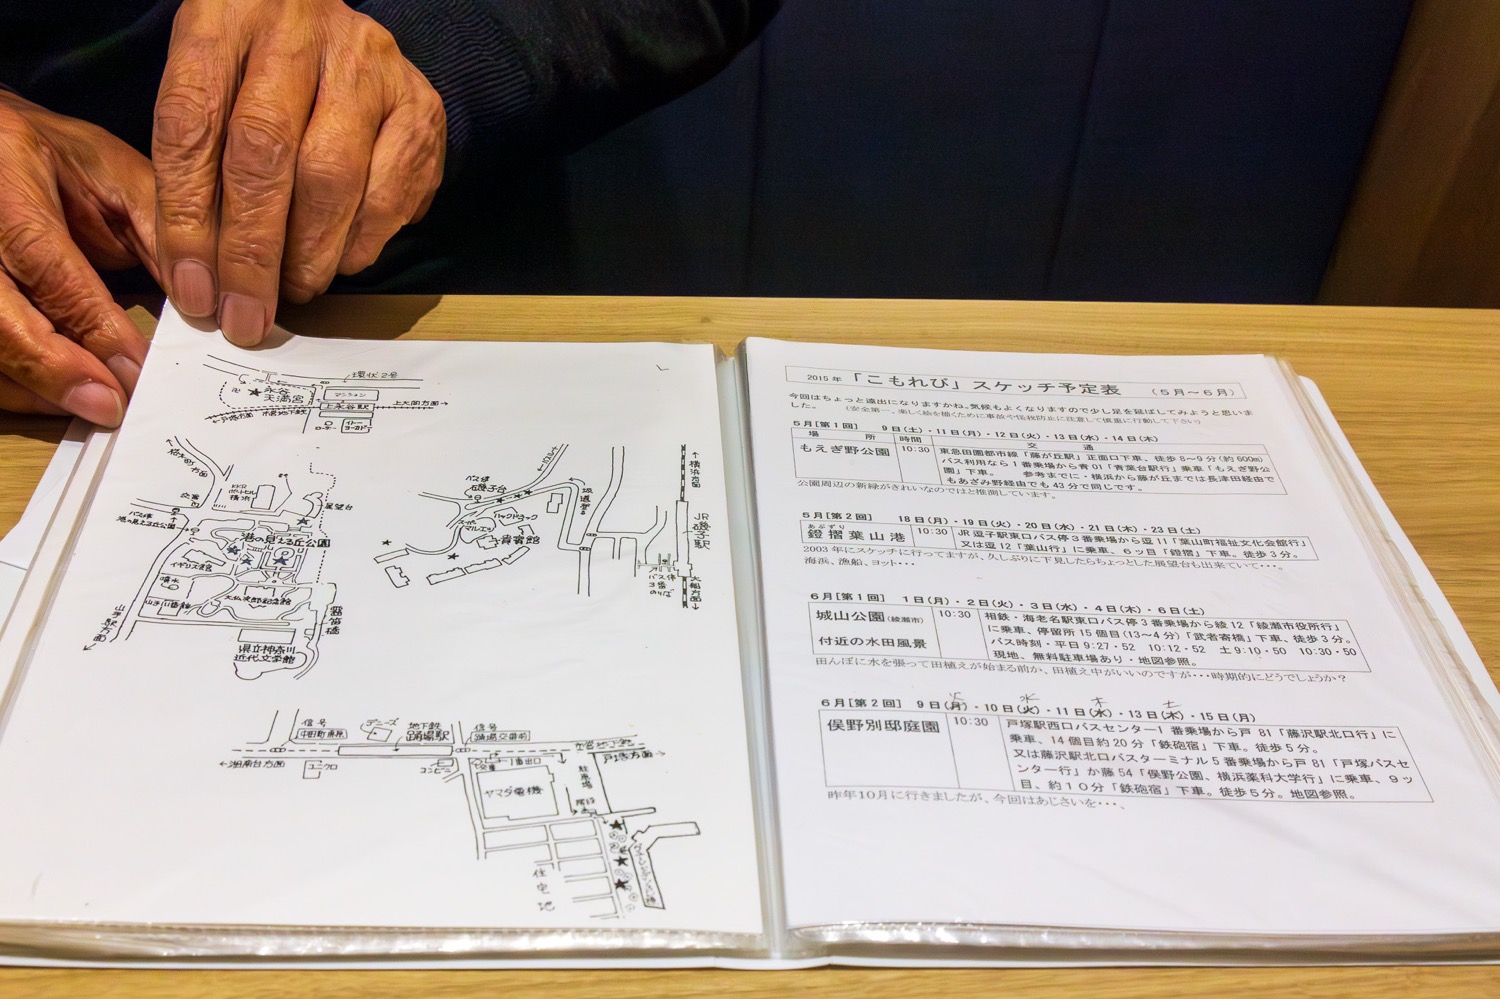 環状2号
永谷
天満宮
マンション
上永谷駅
上大岡方面
イトーヨーカドー
港の見える丘公園
展望台
KKR
ポートヒル
横浜
バス停
港の見える丘公園
交番
イギリス館
噴水
山手111番館
大仏次郎記念館
霧笛橋
県立神奈川
近代文学館
山手駅方面
バス停
磯子台
スーパー
マルエツ
貴賓館
坂道登る
横浜方面
JR磯子駅
大船方面
バス停
3番
のりば
信号
中田町東原
デニーズ
地下鉄
踊場駅
信号
踊場交番前
戸塚方面
湘南台方面
ユニクロ
コンビニ
交番
1番出口
ヤマダ電機
駐車場
階段
住宅地
2015年 「こもれび」スケッチ予定表 (5月~6月)
今回はちょっと遠出になりますかね。気候もよくなりますので少し足を延ばしてみようと思いま
した。 (安全第一、楽しく絵を描くために事故や怪我防止に注意して慎重に行動して下さい)
5月[第1回] 9日(土)・11日(月)・12日(火)・13日(水)・14日(木)
場所 時間 交通
もえぎ野公園 10:30 東急田園都市線「藤が丘駅」正面口下車、徒歩8~9分(約600m)
バス利用なら1番乗場から青01「青葉台駅行」乗車「もえぎ野公
園」下車。 参考までに・横浜から藤が丘までは長津田経由で
もあざみ野経由でも43分で同じです。
公園周辺の新緑がきれいなのではと推測しています。
5月[第2回] 18日(月)・19日(火)・20日(水)・21日(木)・23日(土)
あぶずり
鐙摺葉山港 10:30 JR逗子駅東口バス停3番乗場から逗11「葉山町福祉文化会館行」
又は逗12「葉山行」に乗車、6ッ目「鐙摺」下車。徒歩3分。
2003年にスケッチに行ってますが、久しぶりに下見したらちょっとした展望台も出来ていて・・・。
海浜、漁船、ヨット・・・
6月[第1回] 1日(月)・2日(火)・3日(水)・4日(木)・6日(土)
城山公園(綾瀬市) 10:30 相鉄・海老名駅東口バス停3番乗場から綾12「綾瀬市役所行」
に乗車、停留所15個目(13~4分)「武者寄橋」下車、徒歩3分。
付近の水田風景 バス時刻・平日9:27・52 10:12・52 土9:10・50 10:30・50
現地、無料駐車場あり・地図参照。
田んぼに水を張って田植えが始まる前か、田植え中がいいのですが・・・時期的にどうでしょうか?
火 水 木 土
6月[第2回] 9日(月)・10日(火)・11日(水)・13日(木)・15日(月)
俣野別邸庭園 10:30 戸塚駅西口バスセンター1番乗場から戸81「藤沢駅北口行」に
乗車、14個目約20分「鉄砲宿」下車。徒歩5分。
又は藤沢駅北口バスターミナル5番乗場から戸81「戸塚バスセ
ンター行」か藤54「俣野公園、横浜薬科大学行」に乗車、9ッ
目、約10分「鉄砲宿」下車。徒歩5分。地図参照。
昨年10月に行きましたが、今回はあじさいを・・・、